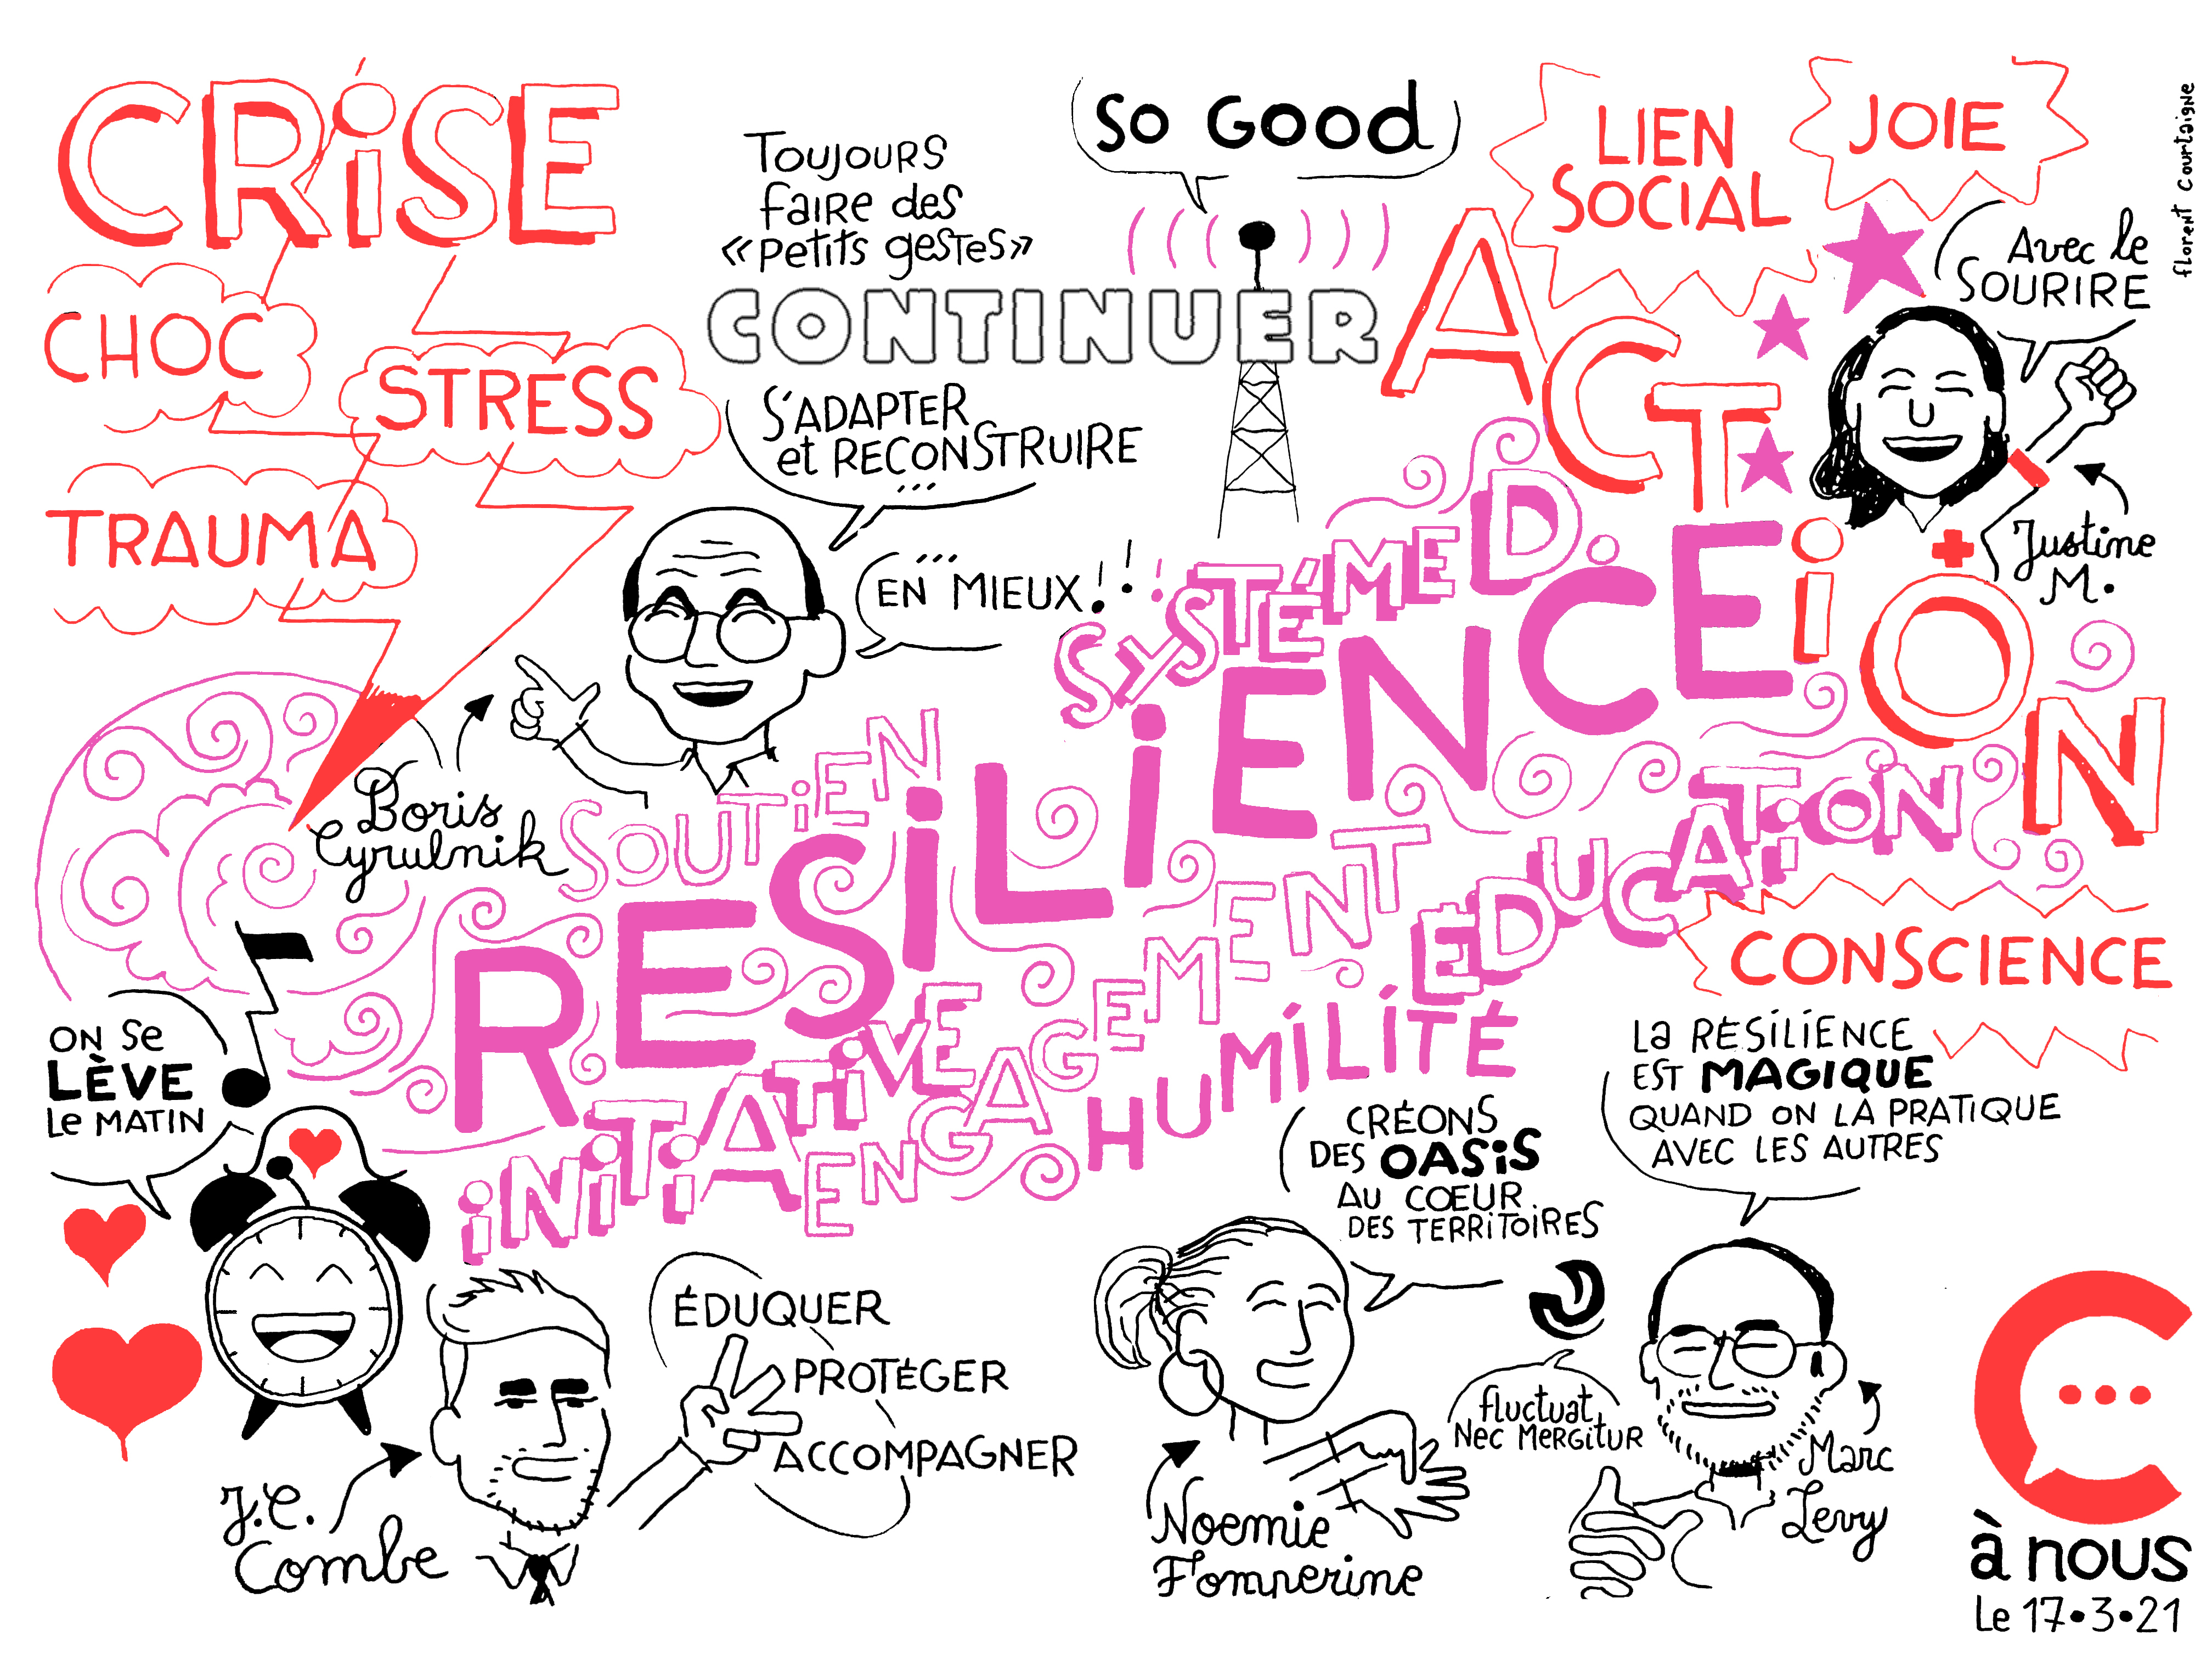 CRiSE
CHOC
STRESS
TRAUMA
Toujours
faire des
«petits gestes»
CONTINUER
S'ADAPTER
et RECONSTRUIRE
...
EN ... MIEUX!!!
Boris
Cyrulnik
So Good
LIEN
SOCIAL
JOIE
florent Courtaigne
Avec le
SOURIRE
Justine
M.
ACTiON
SYSTÉME D.
RESiLiENCE
SOUTiEN
ÉDUCATiON
iNiTiATiVE
ENGAGEMENT
HUMiLiTÉ
CONSCIENCE
La RÉSiLiENCE
EST MAGIQUE
QUAND ON LA PRATIQUE
AVEC LES AUTRES
Marc
Levy
fluctuat
Nec Mergitur
CRÉONS
DES OASiS
AU COEUR
DES TERRiToiRES
Noemie
ON Se
LÈVE
Le MATIN
J.C.
Combe
ÉDUQUER
PROTÉGER
ACCOMPAGNER
C...
à nous
Le 17•3•21